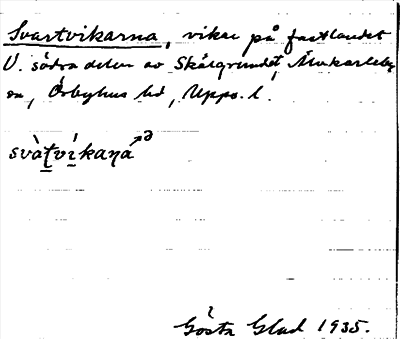 Svartvikarna, vikar på fastlandet
V. södra delen av Skålgrundet, Älvkarleby
sn, Örbyhus hd, Upps. l.
svàt̤ví̱kaṇá ə
Gösta Glad 1935.